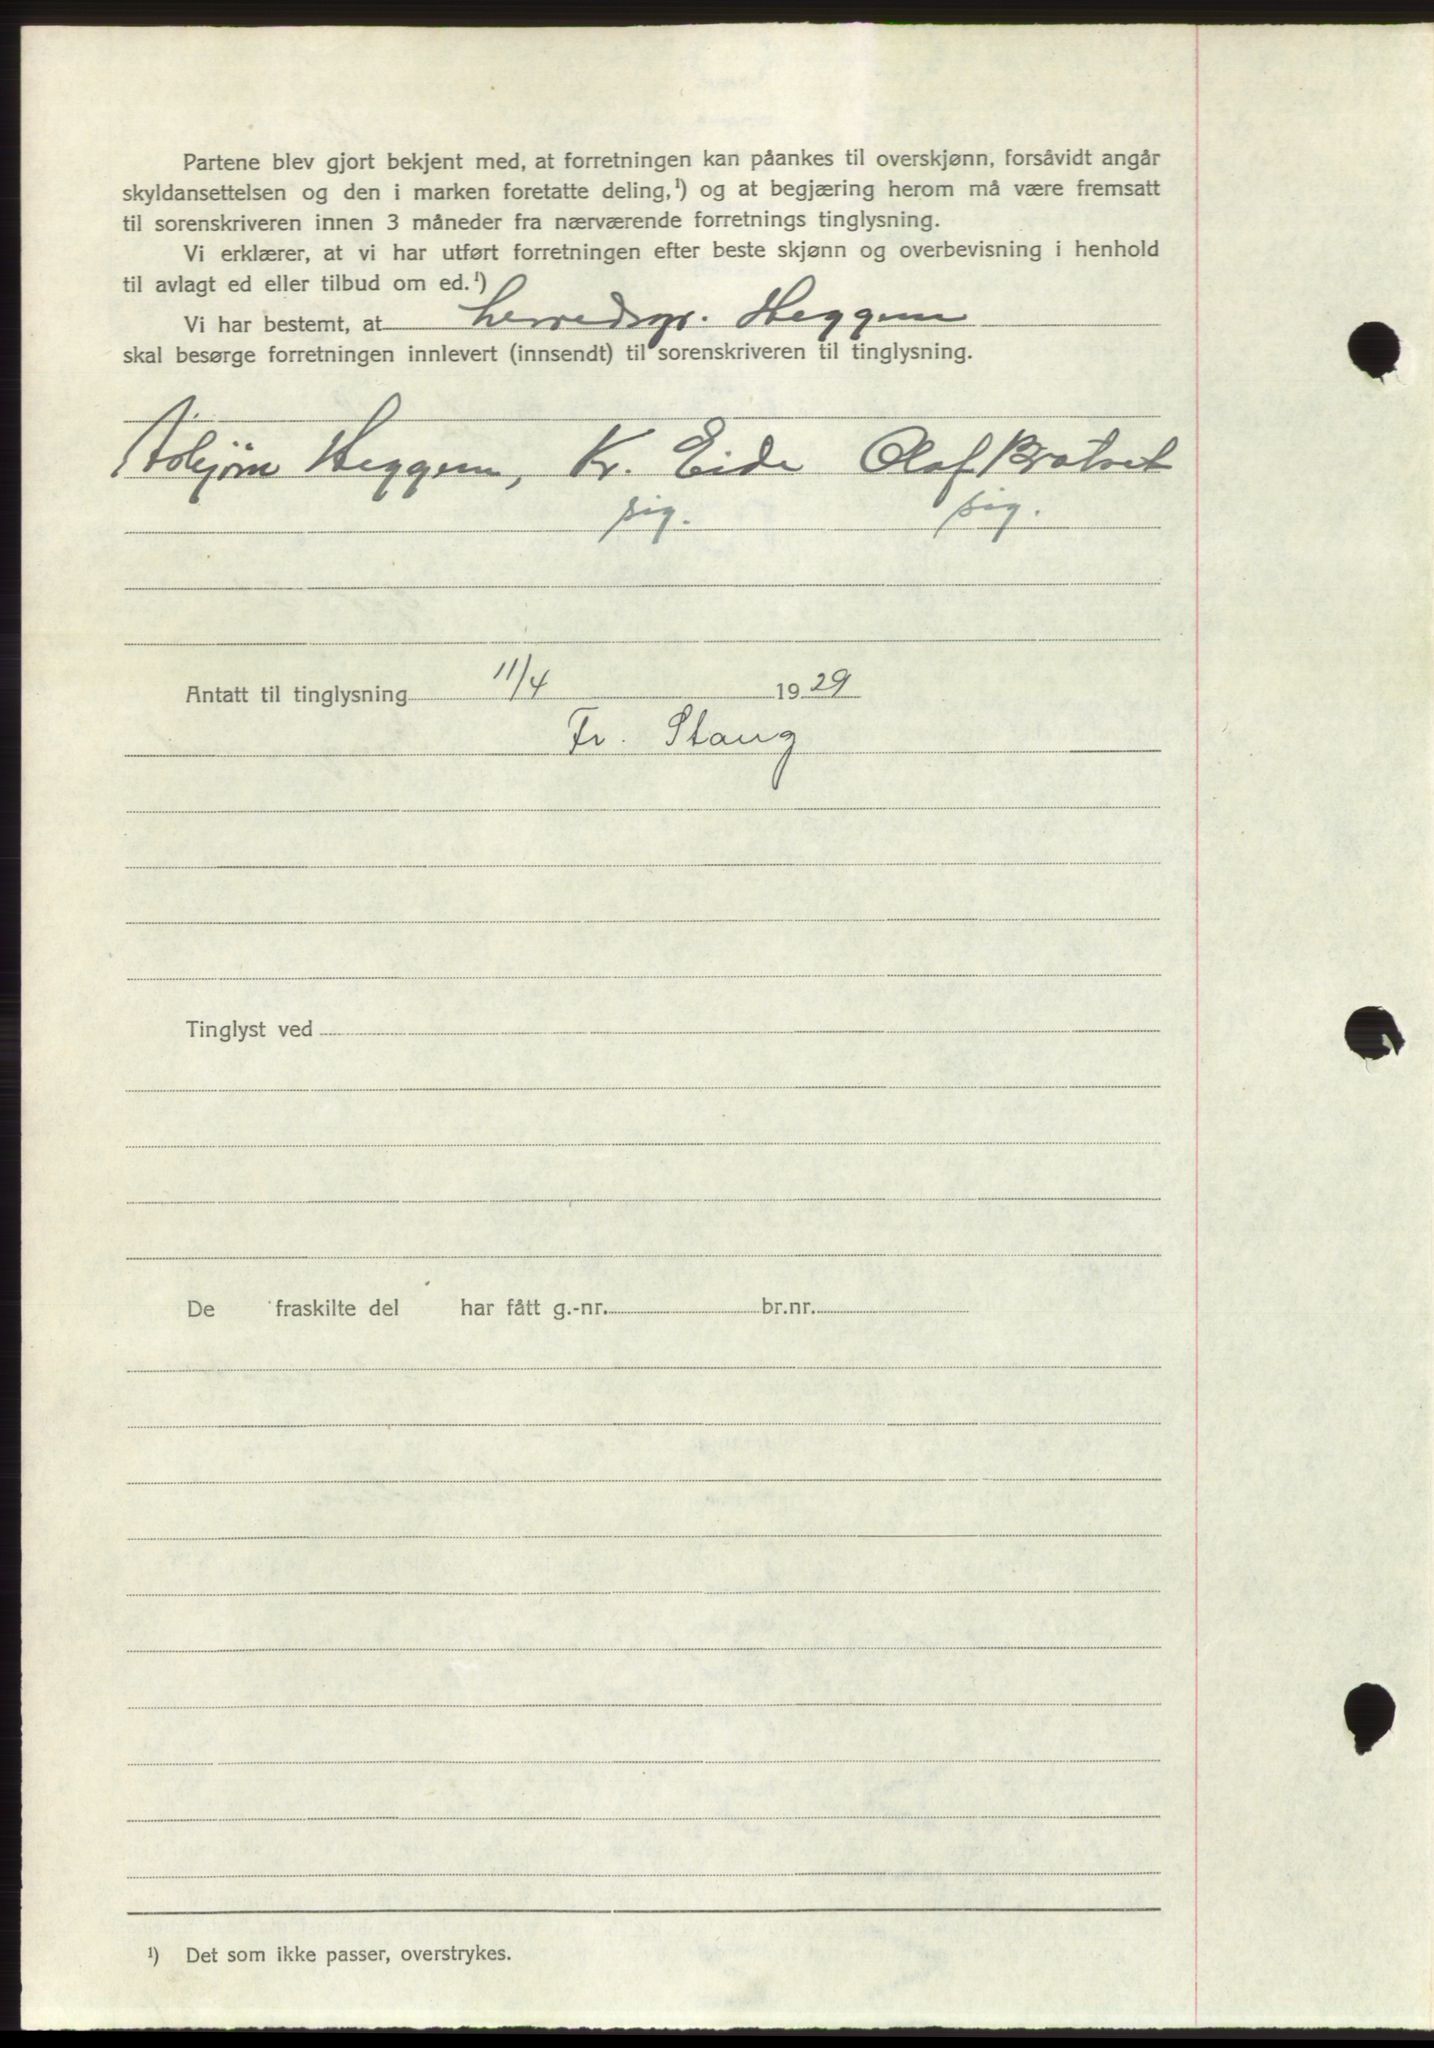 Partene blev gjort bekjent med, at forretningen kan påankes til overskjønn, forsåvidt angår
skyldansettelsen og den i marken foretatte deling,¹) og at begjæring herom må være fremsatt
til sorenskriveren innen 3 måneder fra nærværende forretnings tinglysning.
Vi erklærer, at vi har utført forretningen efter beste skjønn og overbevisning i henhold
til avlagt ed eller tilbud om ed.¹)
Vi har bestemt, at Heggem
skal besørge forretningen innlevert (innsendt) til sorenskriveren til tinglysning.
Heggem, Kr. Eide Olaf
sig. sig.
Antatt til tinglysning 11/4 1929
Fr. Stang
Tinglyst ved
De fraskilte del har fått g.-nr. br.nr.
¹) Det som ikke passer, overstrykes.